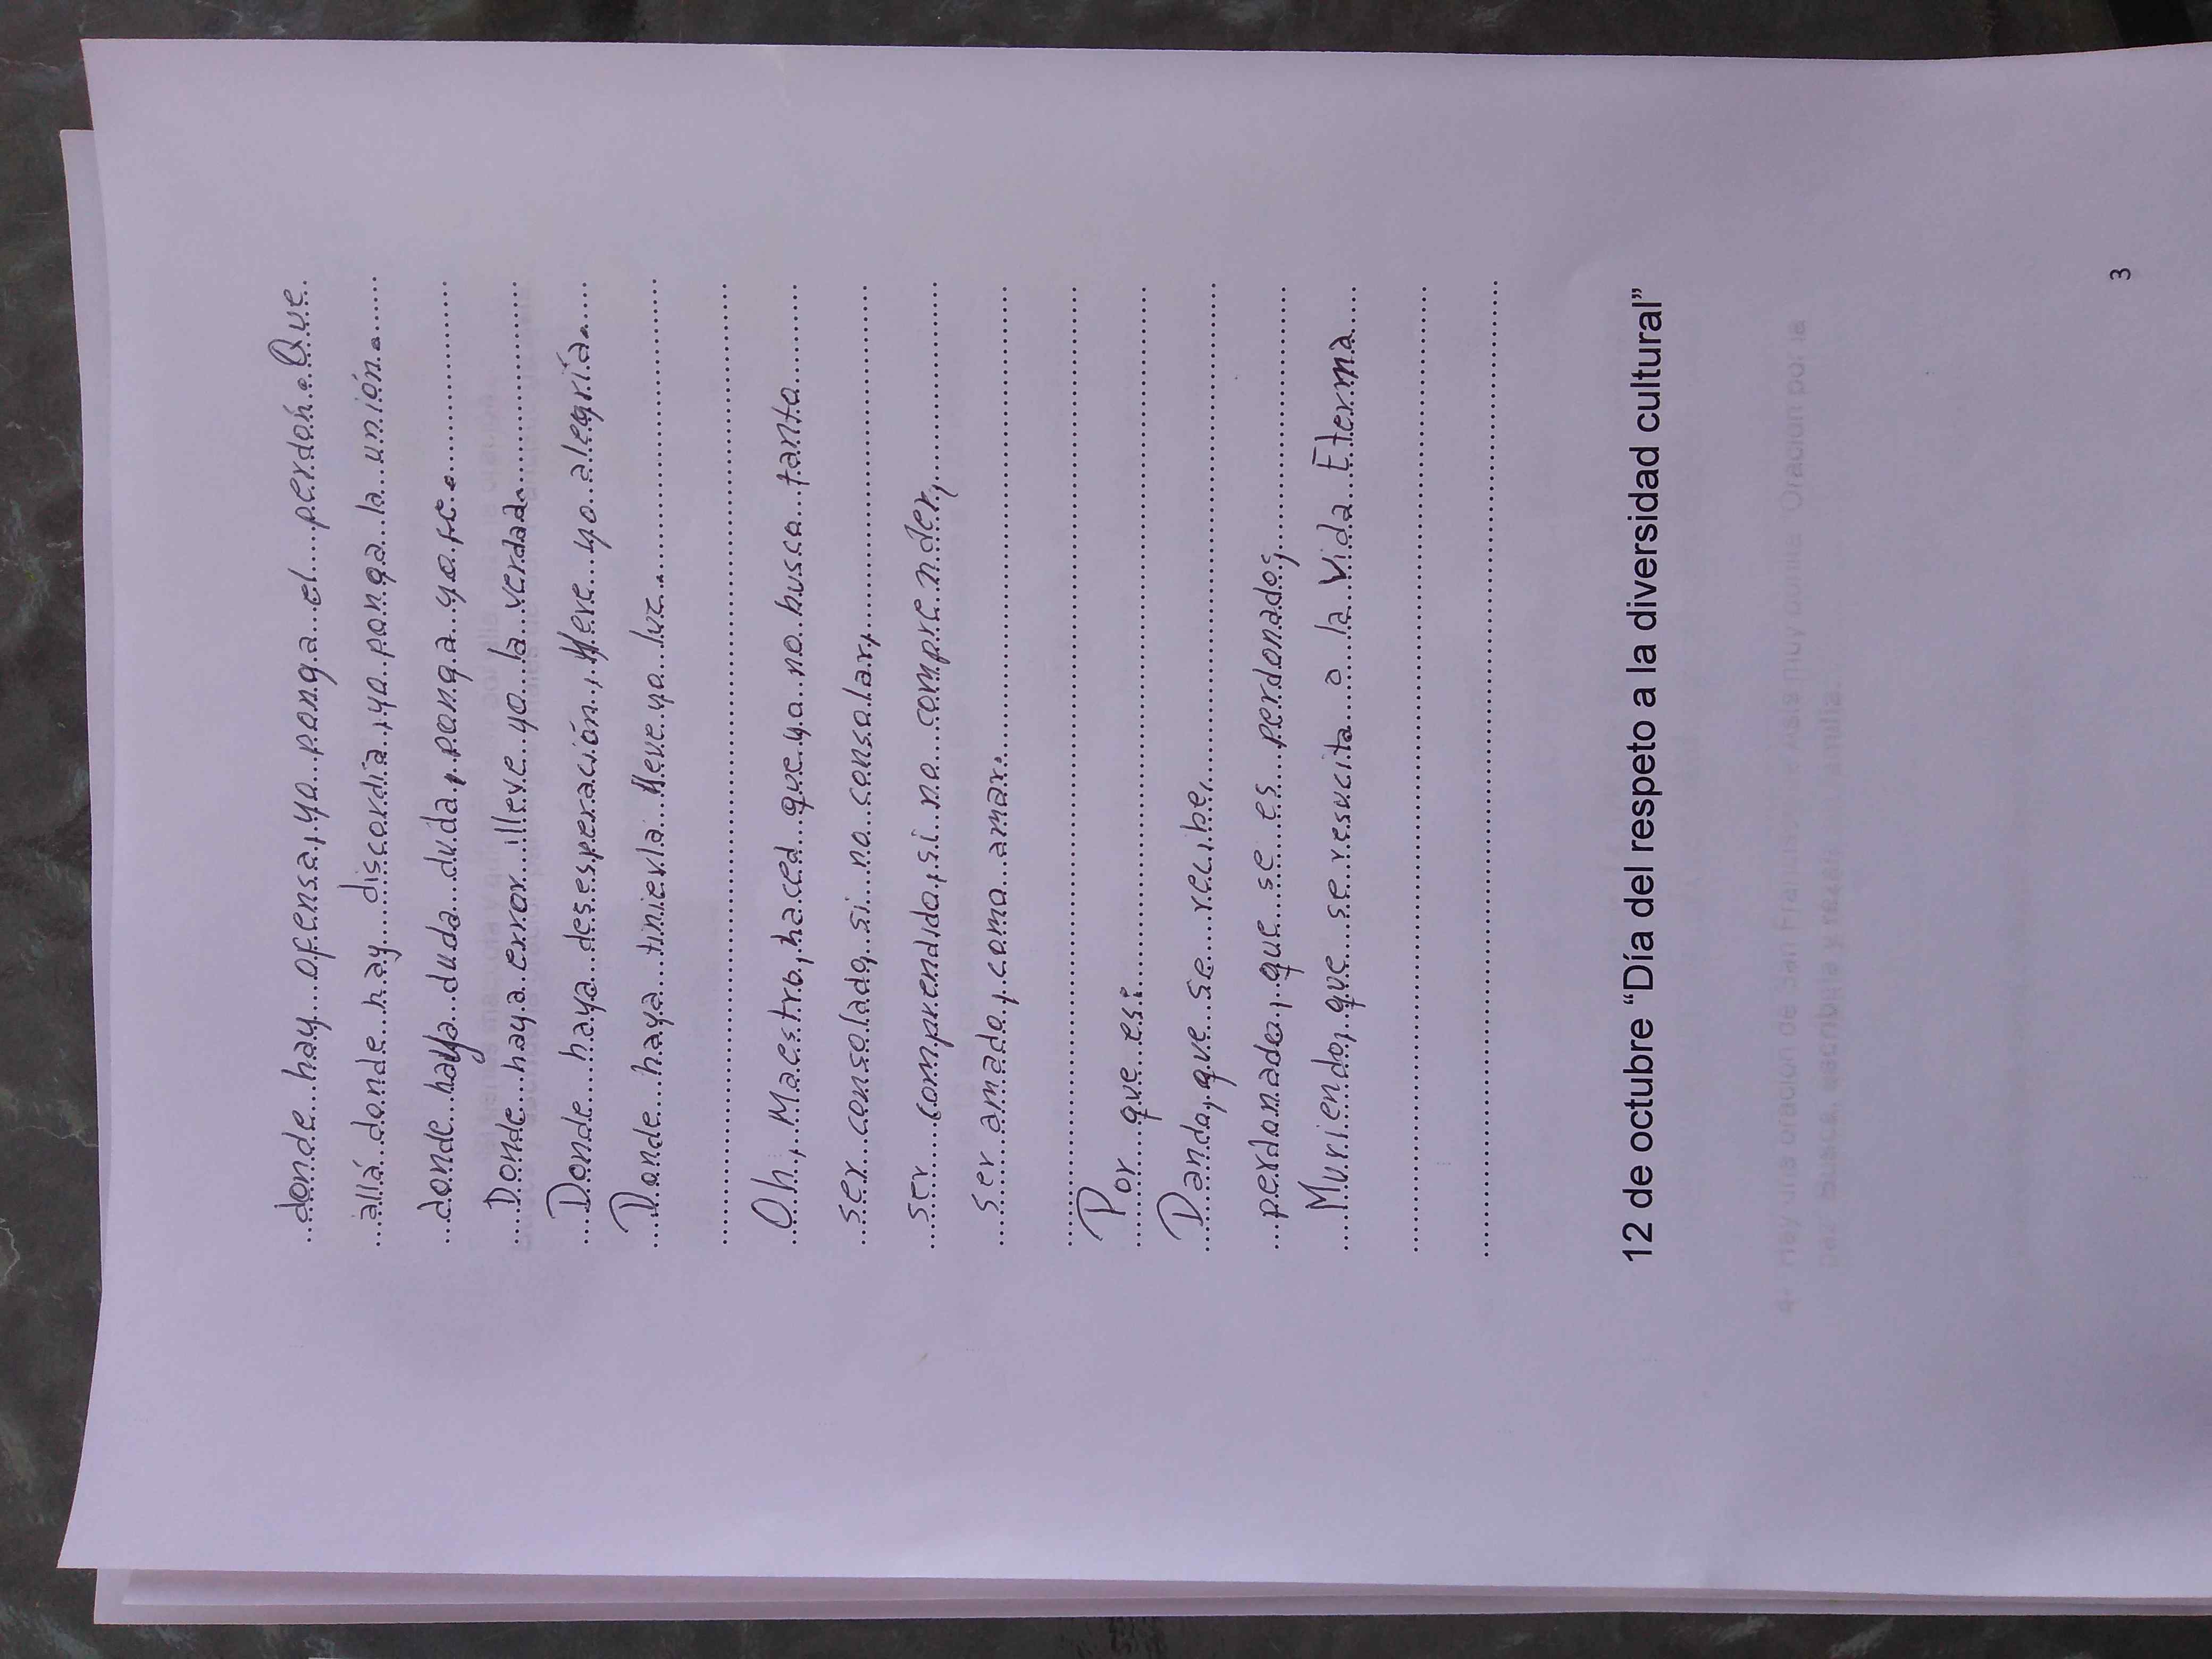 donde hay ofensa, yo ponga el perdón. Que
allá donde hay discordia, yo ponga la unión.
donde haya duda duda, ponga yo fe.
Donde haya error, lleve yo la verdad.
Donde haya desesperación, lleve yo alegría.
Donde haya tinievla lleve yo luz.
Oh, Maestro, haced que yo no busco tanto
ser consolado, si no consolar,
ser comprendido, si no comprender,
ser amado, como amar.
Por que es:
Dando, que se recibe,
perdonado, que se es perdonados,
Muriendo, que se resucita a la Vida Eterma
12 de octubre “Día del respeto a la diversidad cultural”
3